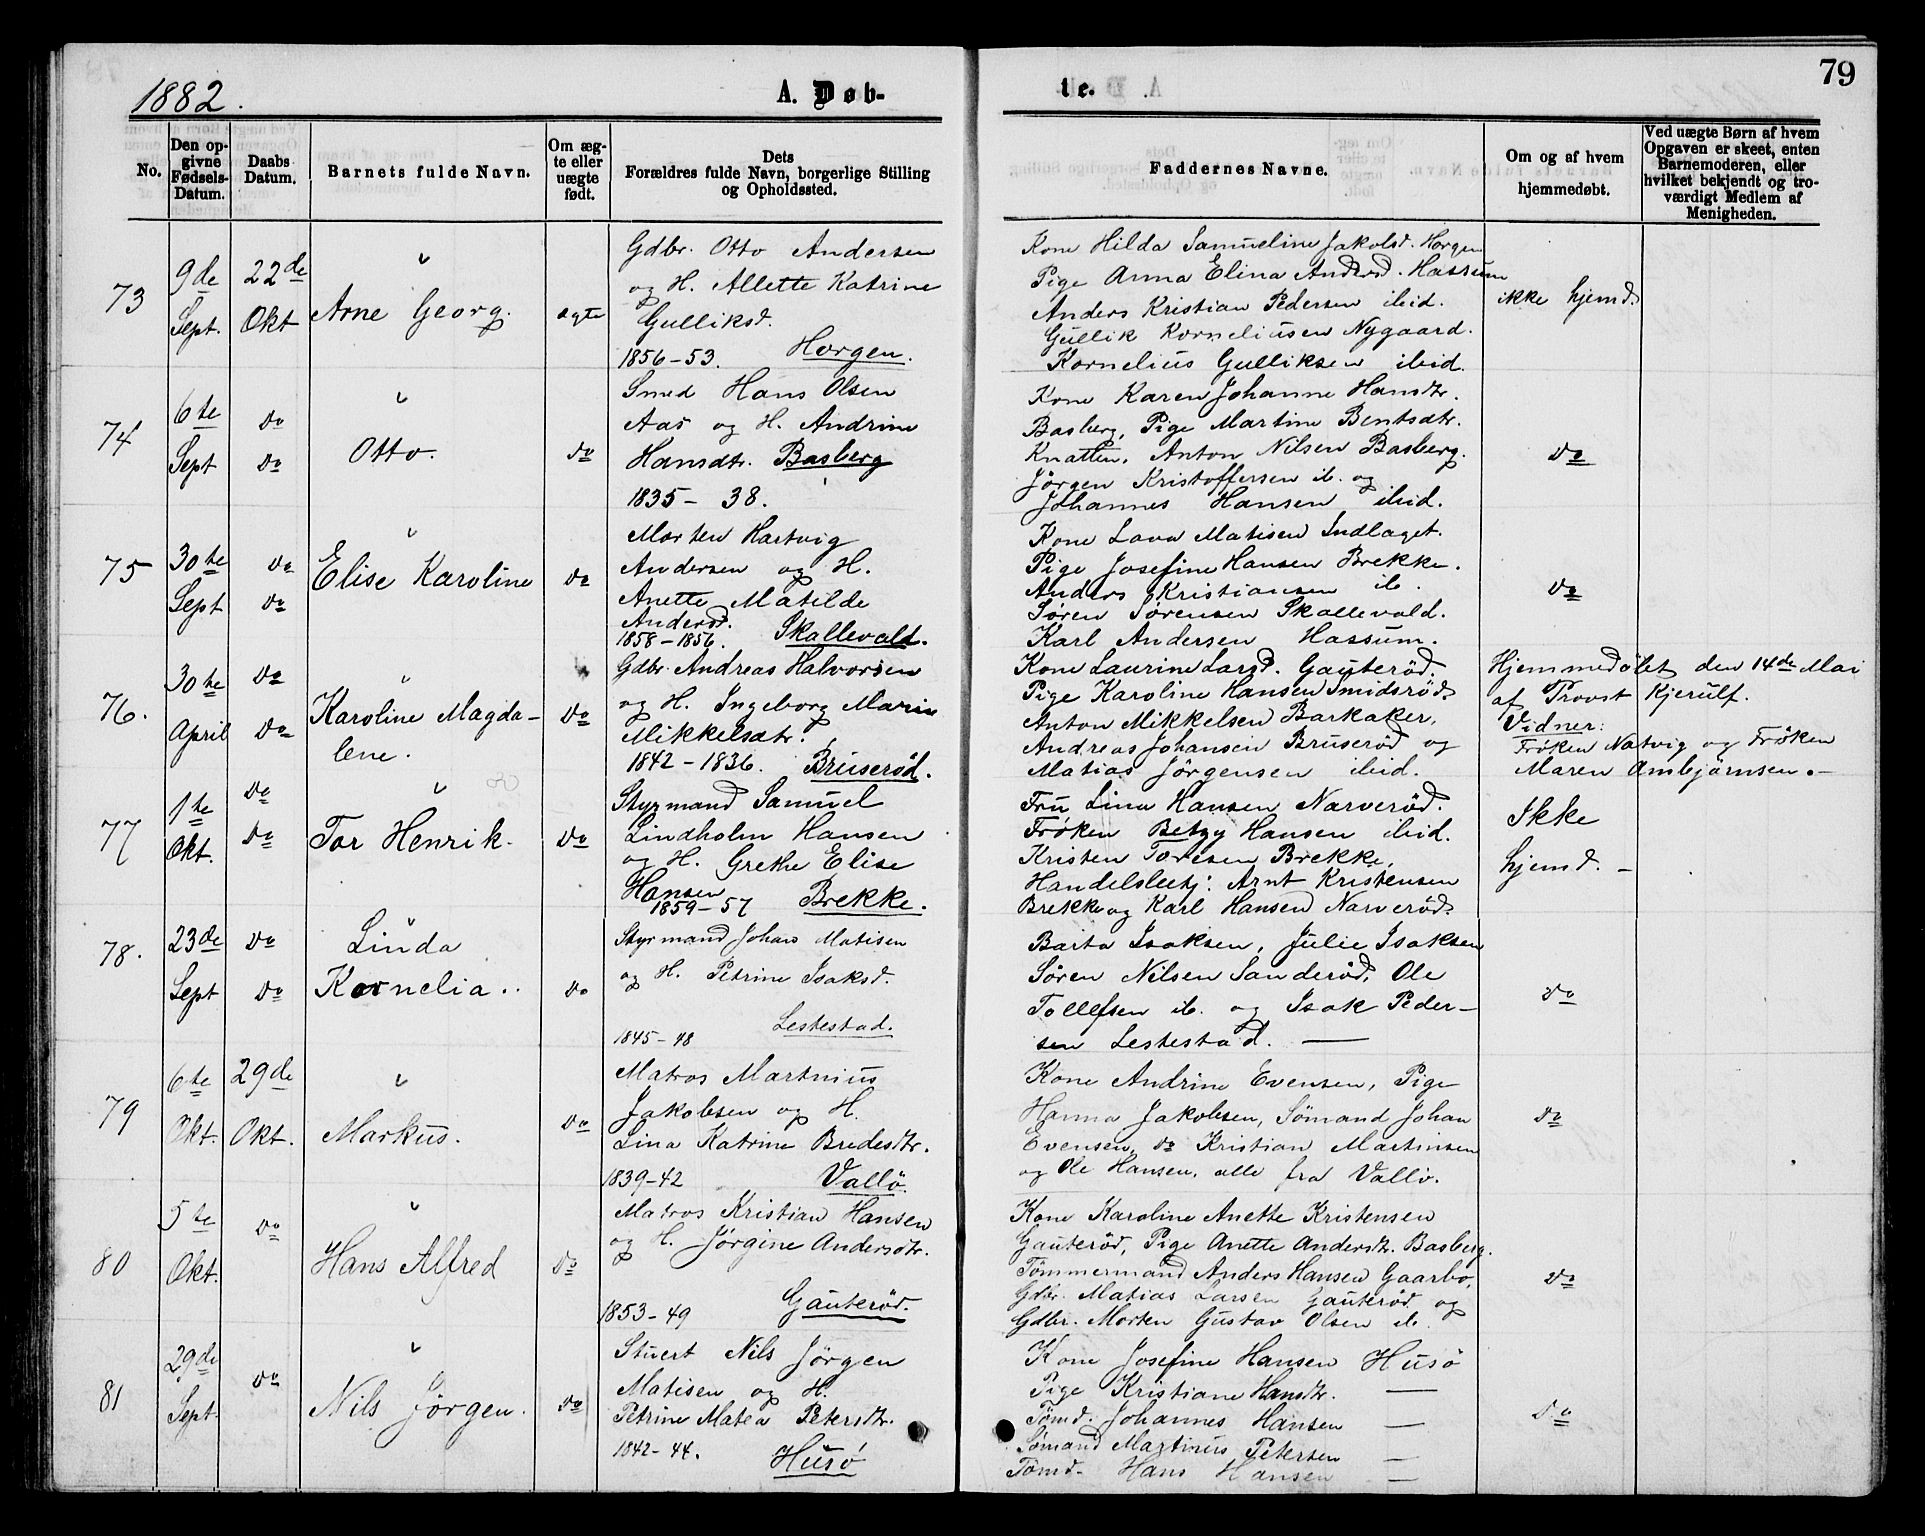 1882.
A. Døb-
te.
79
No.
Den op-
givne
Fødsels-
Datum.
Daabs
Datum.
Barnets fulde Navn.
Om æg-
te eller
uægte
født.
Dets
Forældres fulde Navn, borgerlige Stilling
og Opholdssted.
Faddernes Navne.
Om og af hvem
hjemmedøbt.
Ved uægte Børn af hvem
Opgaven er skeet, enten
Barnemoderen, eller
hvilket bekjendt og tro-
værdigt Medlem af
Menigheden.
73
9de
Sept.
22de
Okt
Arne Georg.
ægte
Gdbr. Otto Andersen
og H. Allette Katrine
Gulliksd.
1856-53. Horgen.
Kone Hilda Samueline Jakobsd. Horgen
Pige Anna Elina Andersd. Hassum
Anders Kristian Pedersen ibid.
Gullik Korneliusen Nygaard.
Kornelius Gulliksen ibid.
ikke hjemd.
74
6te
Sept
do
do
Otto.
do
Smed Hans Olsen
Aas og H. Andrine
Hansdtr. Basberg
1835- 38.
Kone Karen Johanne Hansdtr.
Basberg, Pige Martine Bentsdtr.
Knatten, Anton Nilsen Basberg.
Jörgen Kristoffersen ib. og
Johannes Hansen ibid.
do
75
30te
Sept
do
do
Elise Karoline
do
Morten Hartvig
Andersen og H.
Anette Matilde
Andersd.
1858-1856. Skallevold.
Kone Lava Matisen Indlaget.
Pige Josefine Hansen Brekke.
Anders Kristiansen ib.
Sören Sörensen Skallevold.
Karl Andersen Hassum.
do
76.
30te
April
do
do
Karoline Magda-
lene.
do
Gdbr. Andreas Halvorsen
og H. Ingeborg Marie
Mikkelsdtr.
1842-1836. Bruseröd.
Kone Laurine Larsd. Gauteröd.
Pige Karoline Hansen Smidsröd.
Anton Mikkelsen Barkaker,
Andreas Johansen Bruseröd og
Matias Jörgensen ibid.
Hjemmedöbt den 14de Mai
af Provst Kjerulf.
Vidner:
Fröken Natvig og Fröken
Maren Ambjörnsen.-
77
1te
Okt.
do
do
Tor Henrik.
do
Styrmand Samuel
Lindholm Hansen
og H. Grethe Elise
Hansen
1859-57 Brekke.
Fru Lina Hansen Narveröd.
Fröken Betzy Hansen ibid.
Kristen Toresen Brekke,
Handelsbetj: Arnt Kristensen
Brekke og Karl Hansen Narveröd.
Ikke
hjemd.-
78.
23de
Sept
do
do
Linda
Kornelia.
do
Styrmand Johan Matisen
og H. Petrine Isaksd.
1845-48 Lestestad.
Barta Isaksen, Julie Isaksen
Sören Nilsen Sanderöd, Ole
Tollefsen ib. og Isak Peder-
sen Lestestad.
do
79
6te
Okt.
29de
Okt.
Markus.
do
Matros Martinius
Jakobsen og H.
Lina Katrine Bredesdtr.
1839-42 Vallö.
Kone Andrine Evensen, Pige
Hanna Jakobsen, Sömand Johan
Evensen, do Kristian Martinsen
og Ole Hansen, alle fra Vallö.
do
80
5te
Okt.
do
Hans Alfred
do
Matros Kristian Hansen
og H. Jörgine Andersdtr.
1853-49 Gauteröd.
Kone Karoline Anette Kristensen
Gauteröd, Pige Anette Andersdtr. Basberg.
Tömmermand Anders Hansen Gaarbo,
Gdbr. Matias Larsen Gauteröd og
Gdbr. Morten Gustav Olsen ib.
do
81
29de
Sept.
do
Nils Jörgen.
do
Stuert Nils Jörgen
Matisen og H.
Petrine Matea Petersdtr.
1842-44. Husö
Kone Josefine Hansen Husö
Pige Kristiane Hansdtr. —
Tömd. Johannes Hansen —
Sömand Martinus Petersen —
Tömd. Hans Hansen —
do